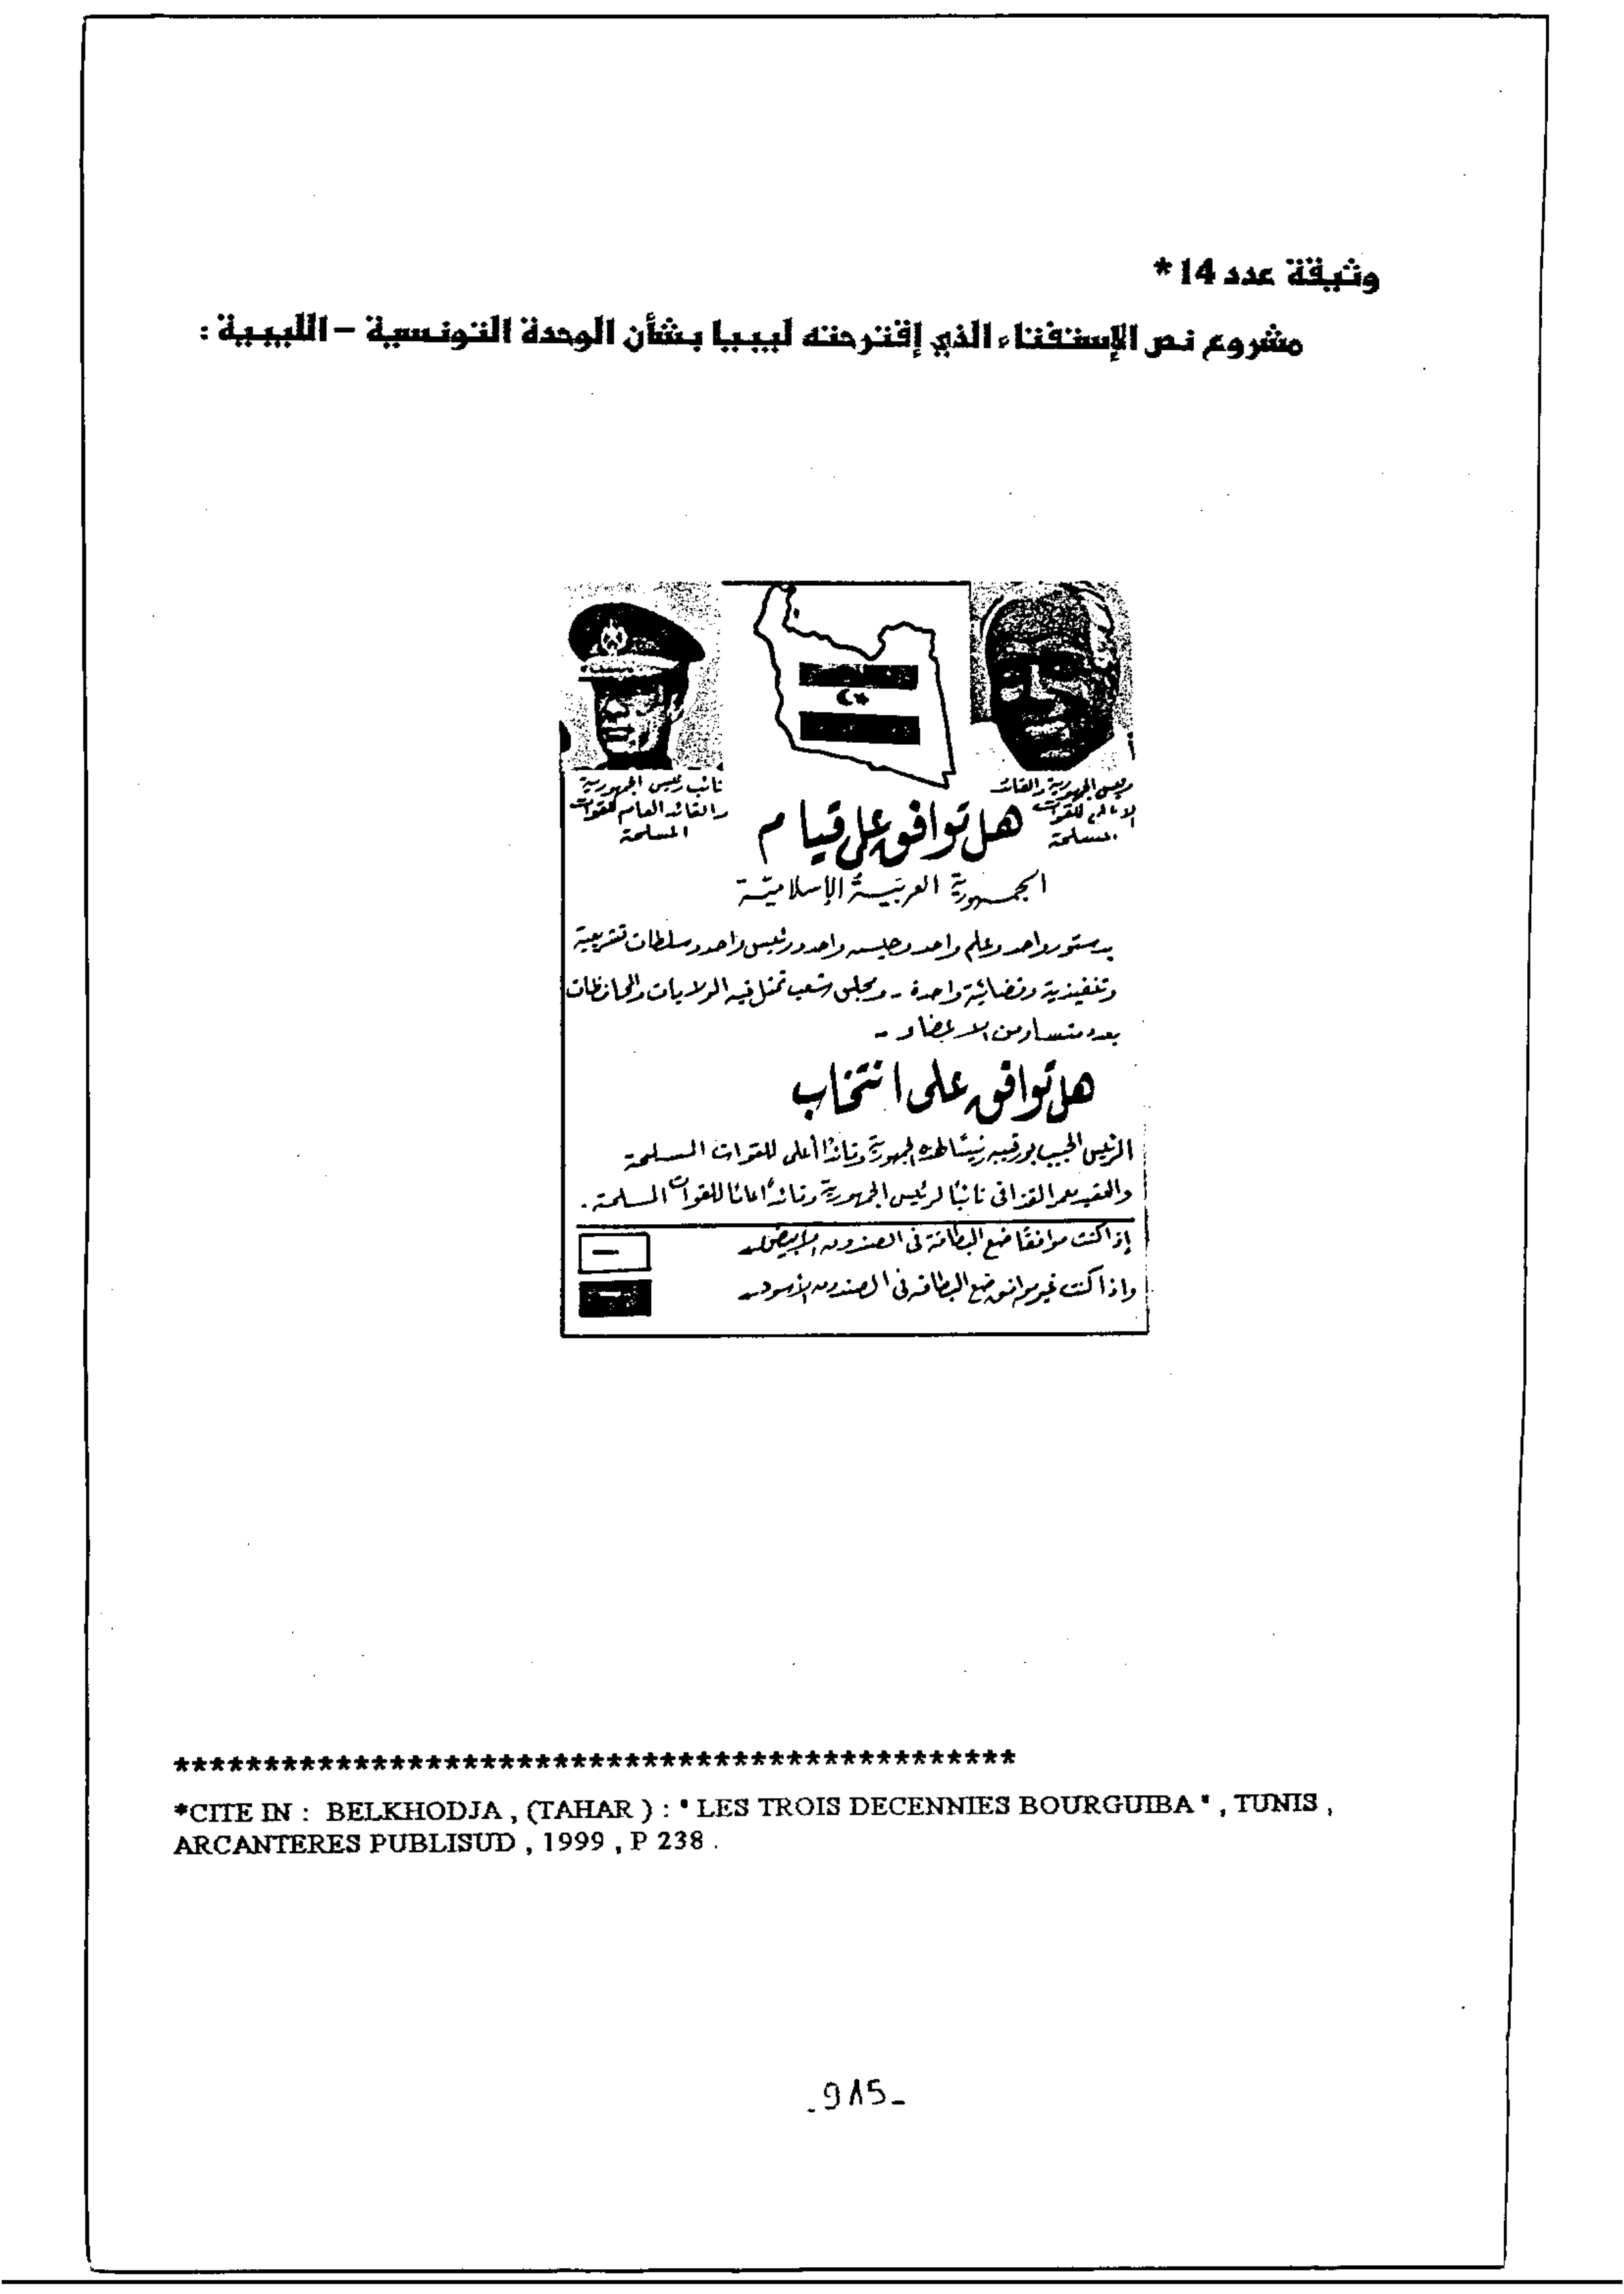 وثيقة عدد 14 *
مشروع نص الإستفتاء الذي إقترحته ليبيا بشأن الوحدة التونسية – الليبية :
رئيس الجمهورية والقائد
الأعلى للقوات
المسلحة
نائب رئيس الجمهورية
والقائد العام للقوات
المسلحة
هل توافق على قيام
الجمهورية العربية الإسلامية
بدستور واحد وعلم واحد وجيش واحد ورئيس واحد وسلطات تشريعية
وتنفيذية وقضائية واحدة - ومجلس شعب تمثل فيه الولايات والمحافظات
بعدد متساو من الاعضاء -
هل توافق على انتخاب
الرئيس الحبيب بورقيبه رئيسًا لهذه الجمهورية وقائدًا أعلى للقوات المسلحة
والعقيد معمر القذافى نائبًا لرئيس الجمهورية وقائدًا عامًا للقوات المسلحة .
إذا كنت موافقًا ضع البطاقة فى الصندوق الأبيض
واذا كنت غير موافق ضع البطاقة فى الصندوق الأسود
**********************************************
*CITE IN : BELKHODJA , (TAHAR ) : " LES TROIS DECENNIES BOURGUIBA " , TUNIS ,
ARCANTERES PUBLISUD , 1999 , P 238 .
- 915 -